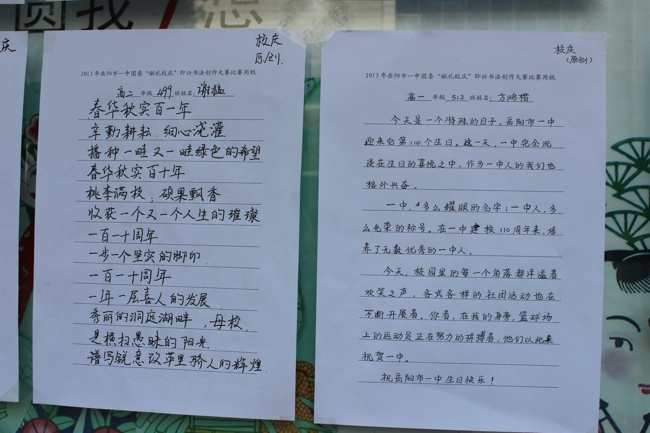 庆
校庆
2013年岳阳市一中团委“献礼校庆”即兴书法创作大赛比赛用纸
高二 年级 499 班姓名:
春华秋实百一年
辛勤耕耘,细心浇灌
播种一畦又一畦绿色的希望
春华秋实百十年
桃李满枝,硕果飘香
收获一个又一个人生的璀璨
一百一十周年
一步一个坚实的脚印
一百一十周年
一年一层喜人的发展
秀丽的洞庭湖畔,母校
是横扫愚昧的阳光
谱写锐意改革里骄人的辉煌
校庆
(原创)
2013年岳阳市一中团委“献礼校庆”即兴书法创作大赛比赛用纸
高一 年级 512 班姓名: 方鸿楷
今天是一个特殊的日子,岳阳市一中
迎来它第110个生日。这一天,一中完全沉
浸在生日的喜悦之中,作为一中人的我们也
格外兴奋。
一中,多么耀眼的名字;一中人,多
么光荣的称号。在一中建校110周年来,培
养了无数优秀的一中人。
今天,校园里的每一个角落都洋溢着
欢笑之声,各式各样的社团活动也在
不断开展着。你看,在我的身旁,篮球场
上的运动员正在努力的拼搏着,他们以此来
祝贺一中。
祝岳阳市一中生日快乐!